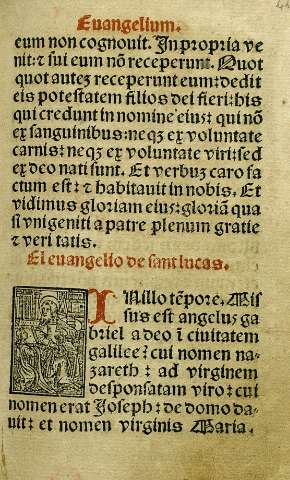 Euangelium.
eum non cognouit. In propria ve
nit: ⁊ sui eum nõ receperunt. Quot
quot autez receperunt eum: dedit
eis potestatem filios dei fieri: his
qui credunt in nomine eius: qui nõ
ex sanguinibus: neqz ex voluntate
carnis: neqz ex voluntate viri: sed
ex deo nati sunt. Et verbuz caro fa
ctum est: ⁊ habitauit in nobis. Et
vidimus gloriam eius: gloriã qua
si vnigeniti a patre plenum gratie
⁊ veri tatis.
El euangelio de sant lucas.
IN illo tẽpore. Mis
sus est angelus ga
briel a deo ĩ ciuitatem
galilee: cui nomen na-
zareth: ad virginem
desponsatam viro: cui
nomen erat Joseph: de domo da-
uit: et nomen virginis Maria.